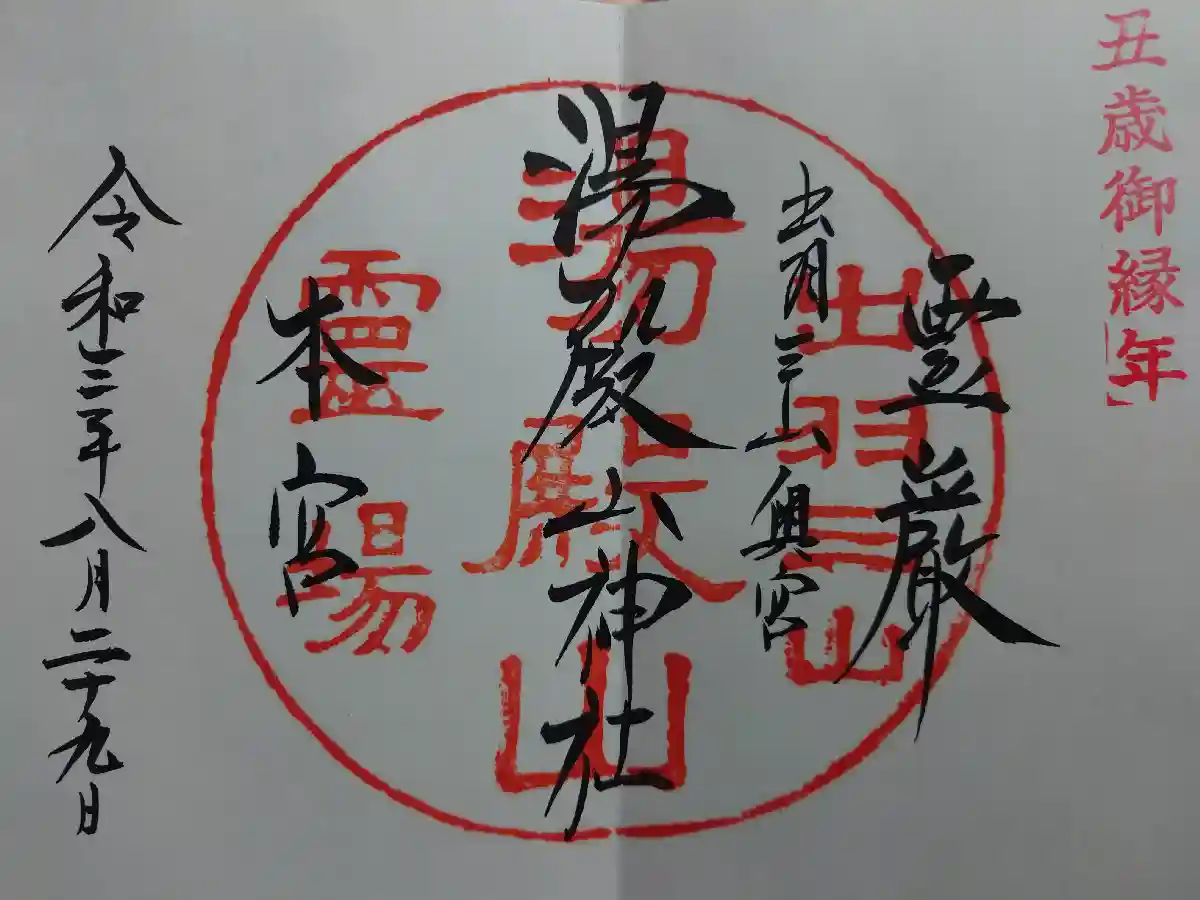 丑歳御縁年
霊巌
出羽三山奥宮
湯殿山神社
本宮
令和三年八月二十九日
出羽三山
湯殿山
霊場